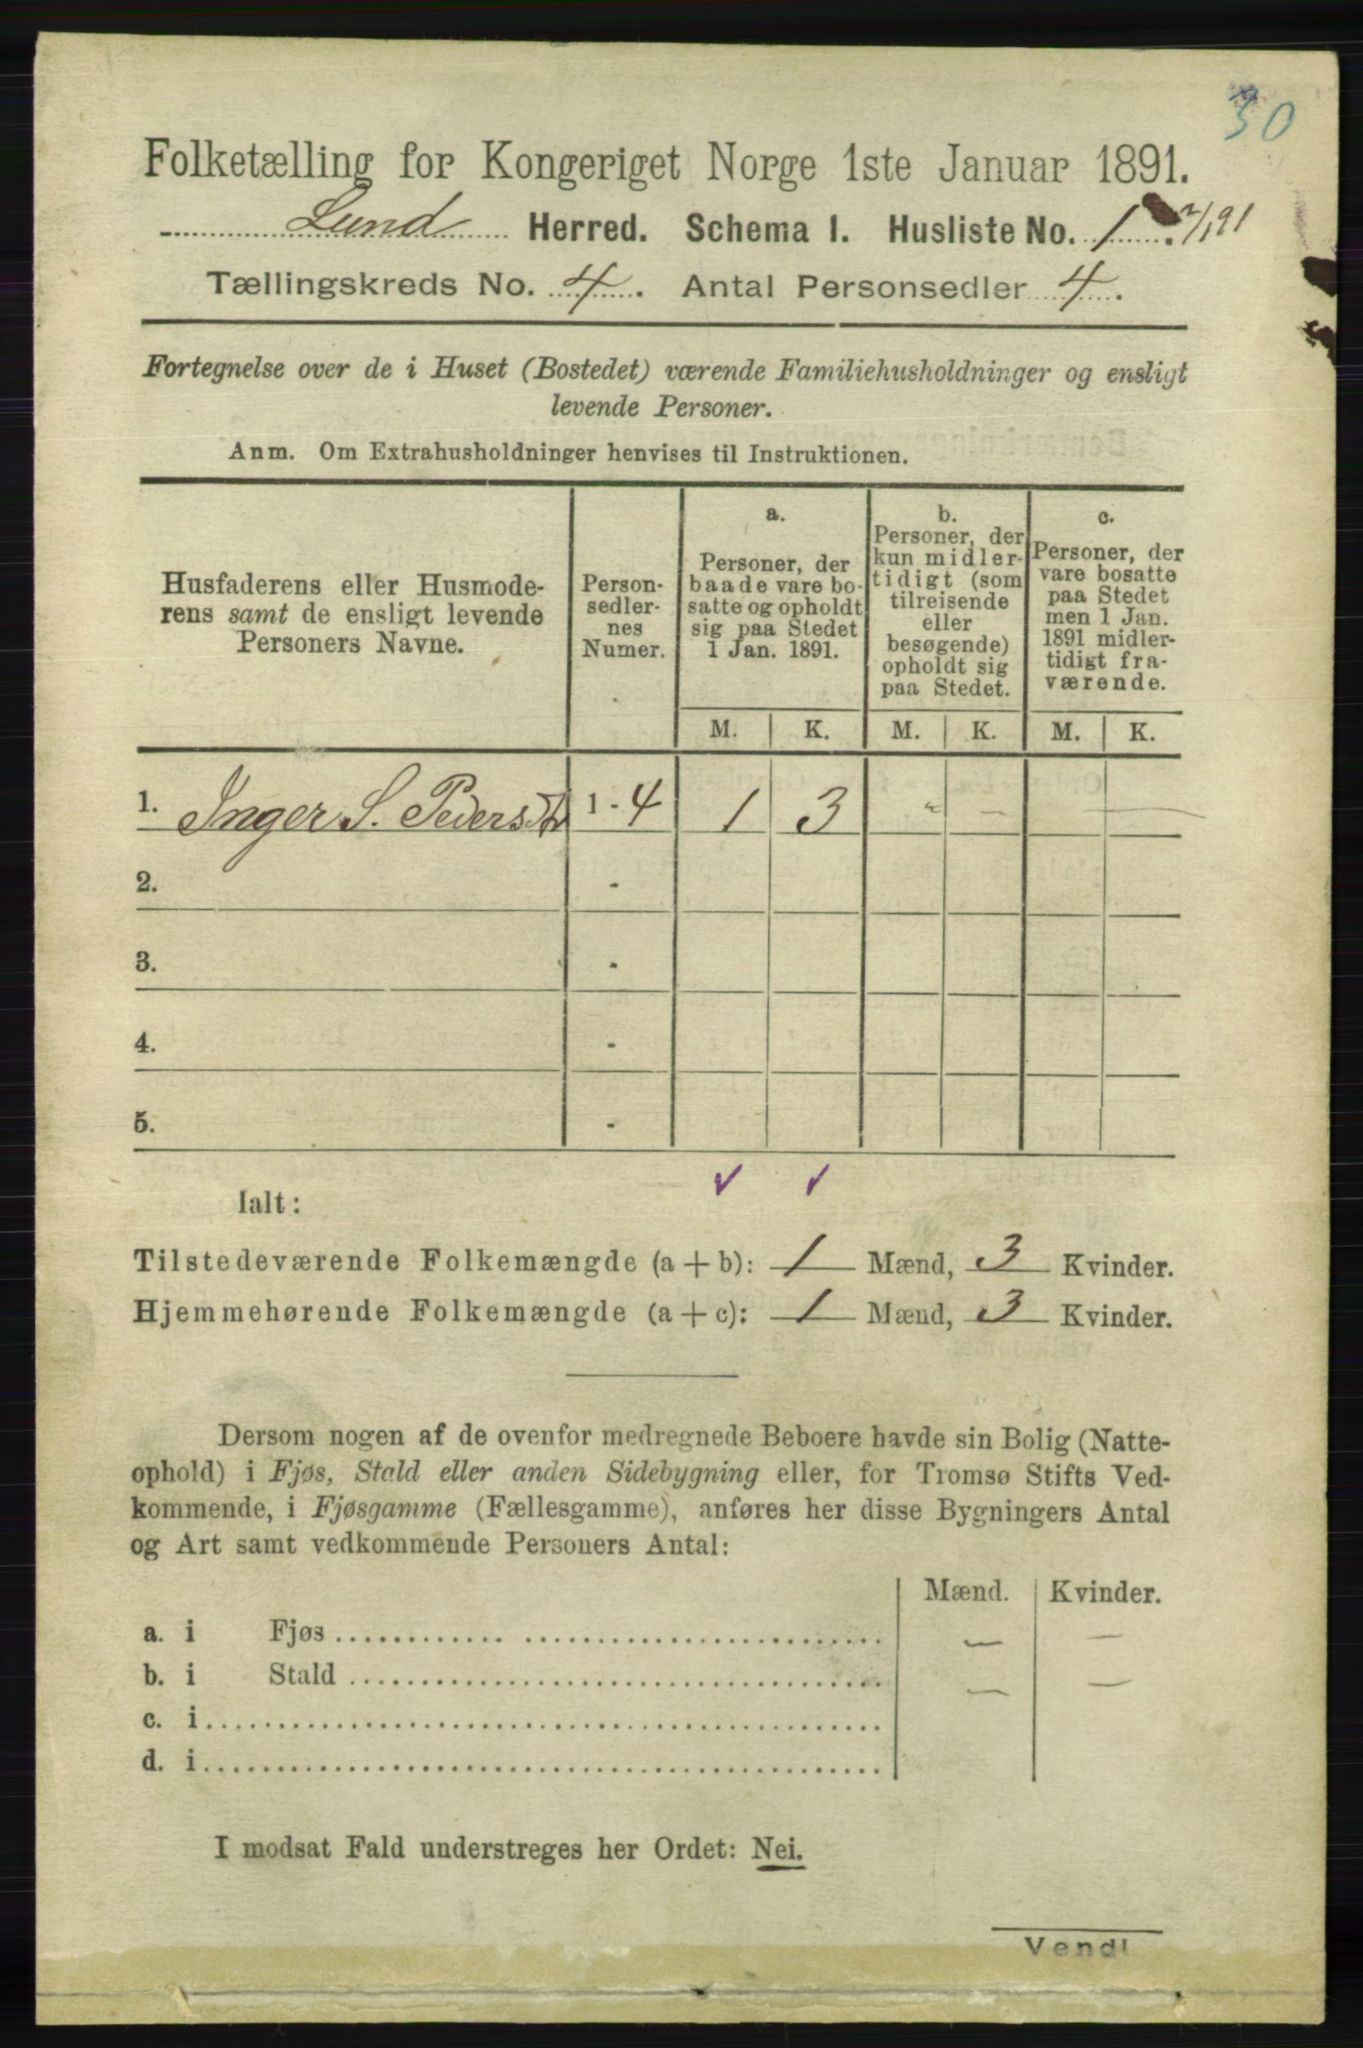 30
Folketælling for Kongeriget Norge 1ste Januar 1891.
Lund Herred. Schema I. Husliste No. 1. 2/1 91
Tællingskreds No. 4. Antal Personsedler 4.
Fortegnelse over de i Huset (Bostedet) værende Familiehusholdninger og ensligt
levende Personer.
Anm. Om Extrahusholdninger henvises til Instruktionen.
Husfaderens eller Husmode-
rens samt de ensligt levende
Personers Navne.
Person-
sedler-
nes
Numer.
a.
Personer, der
baade vare bo-
satte og opholdt
sig paa Stedet
1 Jan. 1891.
b.
Personer, der
kun midler-
tidigt (som
tilreisende
eller
besøgende)
opholdt sig
paa Stedet.
c.
Personer, der
vare bosatte
paa Stedet
men 1 Jan.
1891 midler-
tidigt fra-
værende.
M. K. M. K. M. K.
1. Inger S. Pedersdtr 1 - 4 1 3 " — — —
2. -
3. -
4. -
5. -
✓ ✓
Ialt:
Tilstedeværende Folkemængde (a + b): 1 Mænd, 3 Kvinder.
Hjemmehørende Folkemængde (a + c): 1 Mænd, 3 Kvinder.
Dersom nogen af de ovenfor medregnede Beboere havde sin Bolig (Natte-
ophold) i Fjøs, Stald eller anden Sidebygning eller, for Tromsø Stifts Ved-
kommende, i Fjøsgamme (Fællesgamme), anføres her disse Bygningers Antal
og Art samt vedkommende Personers Antal:
Mænd. Kvinder.
a. i Fjøs — —
b. i Stald — —
c. i
d. i
I modsat Fald understreges her Ordet: Nei.
Vend!